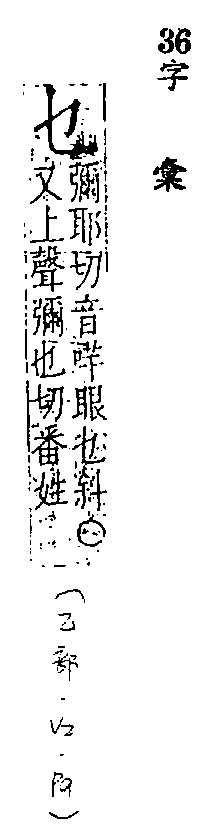 36
字彙
乜
彌耶切音哶眼乜斜〇
又上聲彌也切番姓
(乙部.